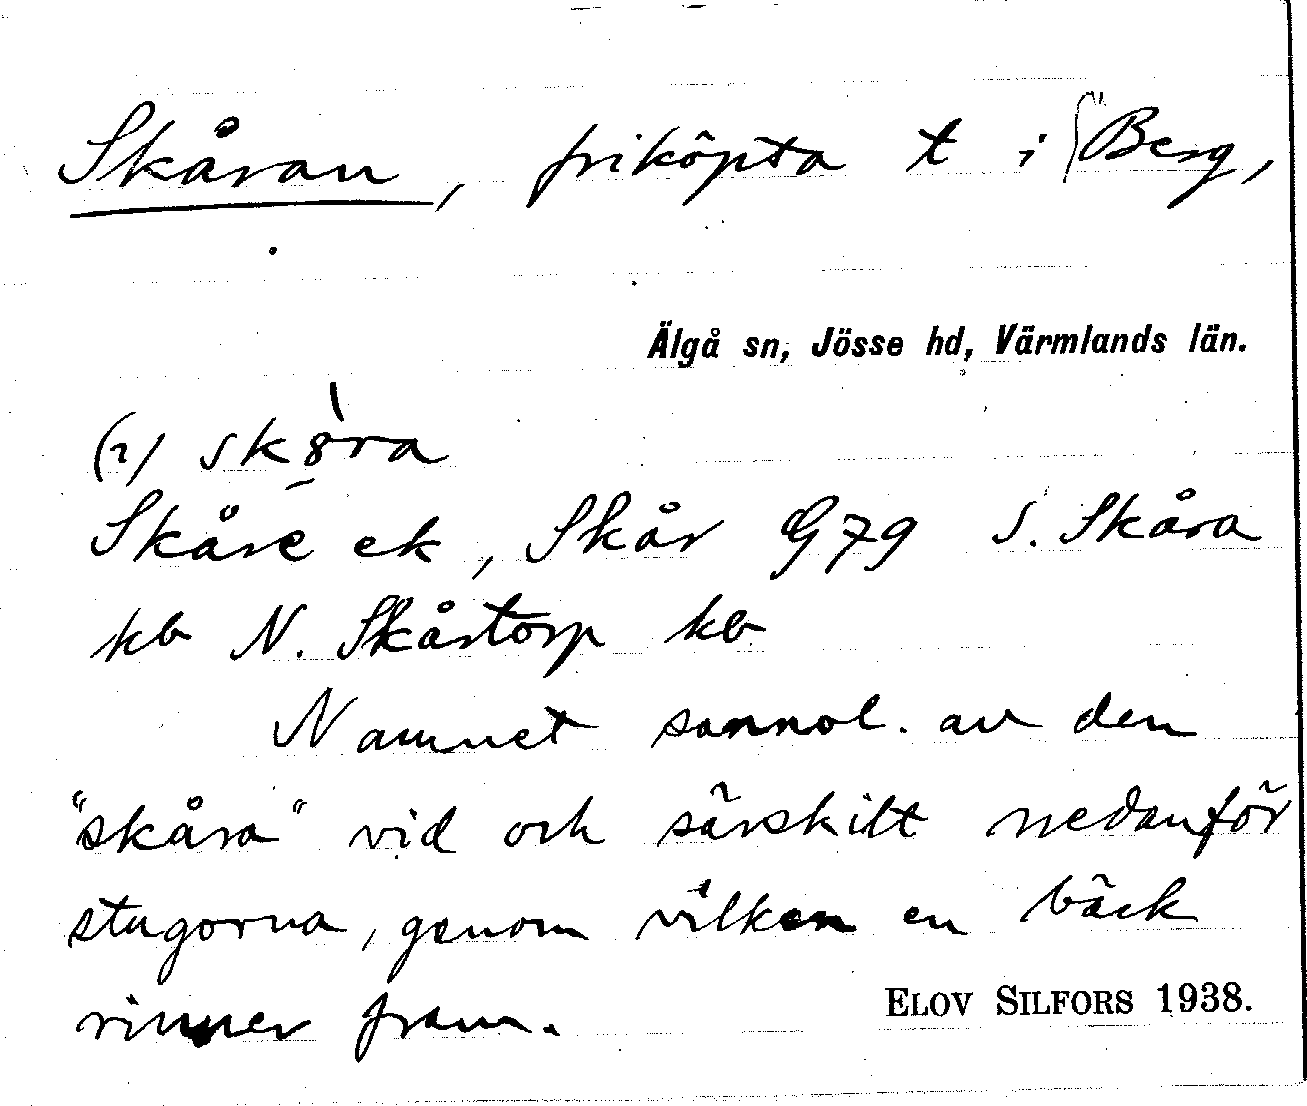 Skåran, friköpta t i Berg,
Älgå sn, Jösse hd, Värmlands län.
(i) sk8ra
Skåre ek, Skår G79 S. Skåra
kb N. Skåstorp kb
Namnet sannol. av den
"skåra" vid och särskilt nedanför
stugorna, genom vilken en bäck
rinner fram.
ELOV SILFORS 1938.